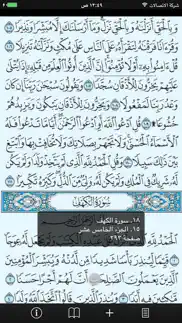 شركة الاتصالات ١٢:٤٩ ص
وَبِالْحَقِّ أَنزَلْنَاهُ وَبِالْحَقِّ نَزَلَ وَمَا أَرْسَلْنَاكَ إِلَّا مُبَشِّرًا وَنَذِيرًا ١٠٥
وَقُرْآنًا فَرَقْنَاهُ لِتَقْرَأَهُ عَلَى النَّاسِ عَلَىٰ مُكْثٍ وَنَزَّلْنَاهُ تَنزِيلًا ١٠٦
قُلْ آمِنُوا بِهِ أَوْ لَا تُؤْمِنُوا إِنَّ الَّذِينَ أُوتُوا الْعِلْمَ مِن قَبْلِهِ إِذَا يُتْلَىٰ
عَلَيْهِمْ يَخِرُّونَ لِلْأَذْقَانِ سُجَّدًا ١٠٧ وَيَقُولُونَ سُبْحَانَ رَبِّنَا إِن كَانَ
وَعْدُ رَبِّنَا لَمَفْعُولًا ١٠٨ وَيَخِرُّونَ لِلْأَذْقَانِ يَبْكُونَ وَيَزِيدُهُمْ
خُشُوعًا ۩ ١٠٩ قُلِ ادْعُوا اللَّهَ أَوِ ادْعُوا الرَّحْمَٰنَ أَيًّا مَّا تَدْعُوا فَلَهُ الْأَسْمَاءُ
الْحُسْنَىٰ وَلَا تَجْهَرْ بِصَلَاتِكَ وَلَا تُخَافِتْ بِهَا وَابْتَغِ
بَيْنَ ذَٰلِكَ سَبِيلًا ١١٠ وَقُلِ الْحَمْدُ لِلَّهِ الَّذِي لَمْ يَتَّخِذْ وَلَدًا وَلَمْ يَكُن
لَّهُ شَرِيكٌ فِي الْمُلْكِ وَلَمْ يَكُن لَّهُ وَلِيٌّ مِّنَ الذُّلِّ وَكَبِّرْهُ تَكْبِيرًا ١١١
سُورَةُ الْكَهْفِ
١٨. سورة الكهف
١٥. الجزء الخامس عشر
صفحة ٢٩٣
الْحَمْدُ لِلَّهِ
عِوَجًا
قَيِّمًا لِّيُنذِرَ بَأْسًا
وَيُبَشِّرَ الْمُؤْمِنِينَ
الَّذِينَ يَعْمَلُونَ الصَّالِحَاتِ أَنَّ لَهُمْ أَجْرًا حَسَنًا